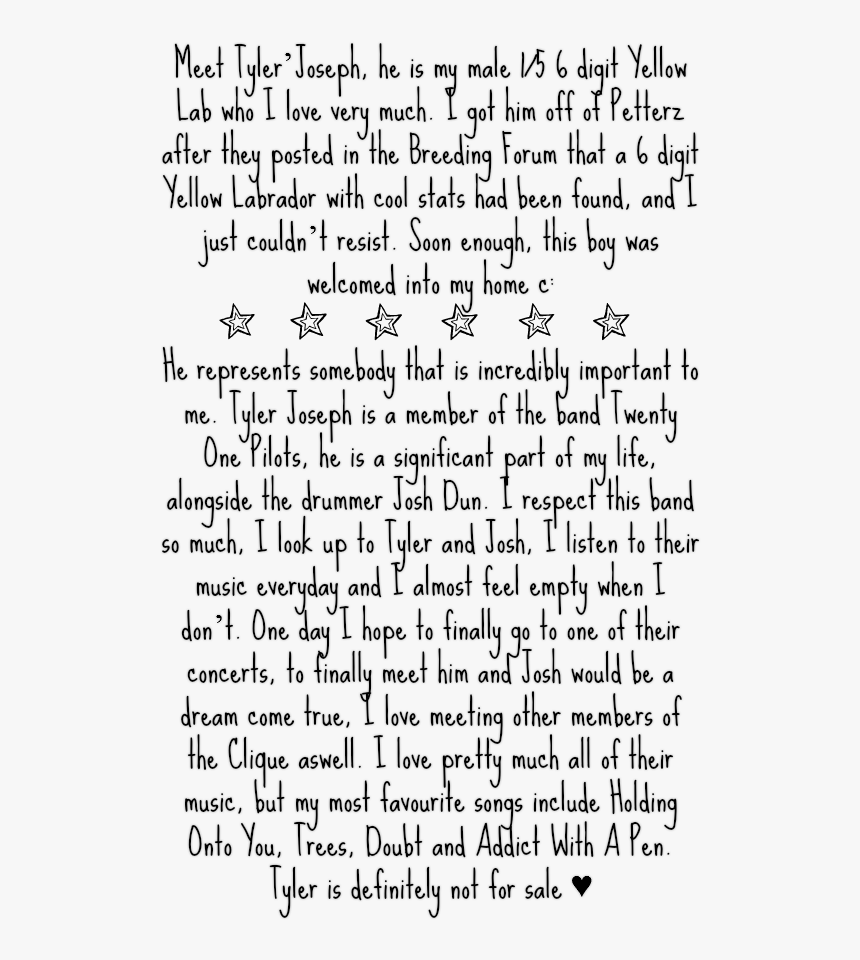 Meet Tyler'Joseph, he is my male 1/5 6 digit Yellow
Lab who I love very much. I got him off of Petterz
after they posted in the Breeding Forum that a 6 digit
Yellow Labrador with cool stats had been found, and I
just couldn't resist. Soon enough, this boy was
welcomed into my home c:
He represents somebody that is incredibly important to
me. Tyler Joseph is a member of the band Twenty
One Pilots, he is a significant part of my life,
alongside the drummer Josh Dun. I respect this band
so much, I look up to Tyler and Josh, I listen to their
music everyday and I almost feel empty when I
don't. One day I hope to finally go to one of their
concerts, to finally meet him and Josh would be a
dream come true, I love meeting other members of
the Clique aswell. I love pretty much all of their
music, but my most favourite songs include Holding
Onto You, Trees, Doubt and Addict With A Pen.
Tyler is definitely not for sale ♥